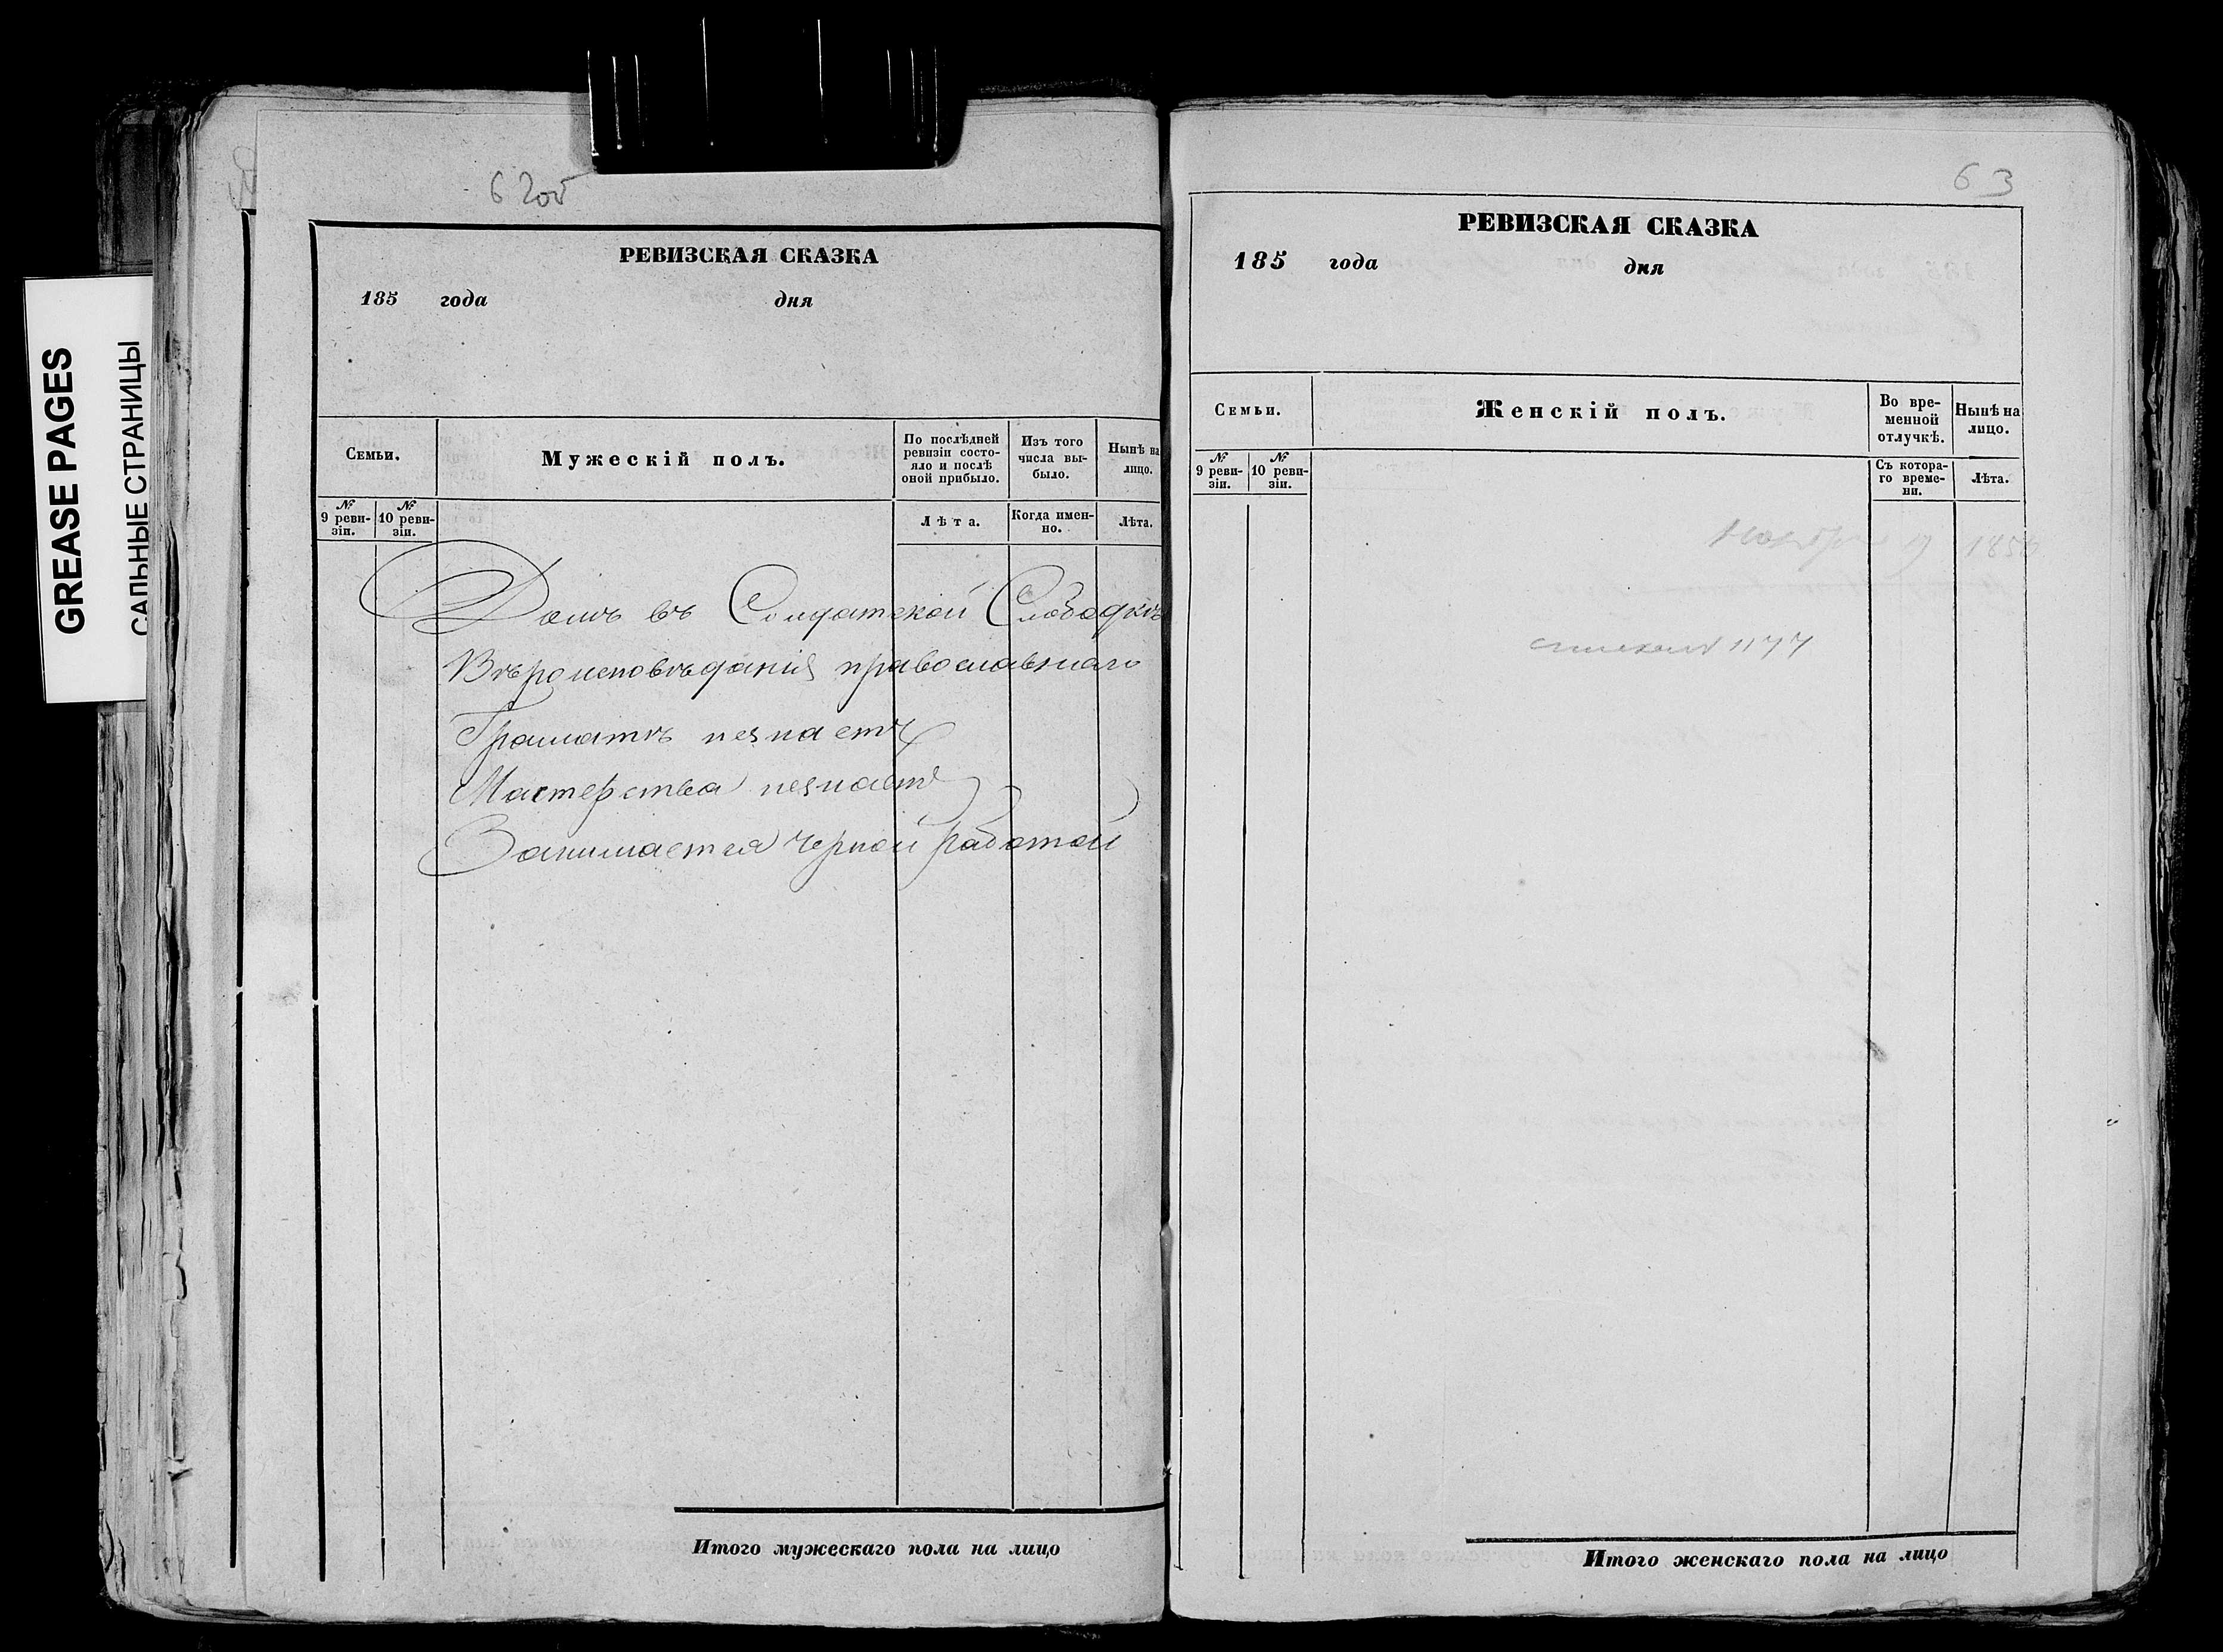 GREASE PAGES
САЛЬНЫЕ СТРАНИЦЫ
62об
РЕВИЗСКАЯ СКАЗКА
185 года дня
Семьи.
Мужескій полъ.
По послѣдней
ревизіи состо-
яло и послѣ
оной прибыло.
Изъ того
числа вы-
было.
Нынѣ на
лицо.
№
9 реви-
зіи.
№
10 реви-
зіи.
Лѣта.
Когда имен-
но.
Лѣта.
Домъ въ Солдатской Слободкѣ
Вѣроисповѣданія православнаго
Грамматѣ незнаетъ
Мастерства незнаетъ
Занимается черной работой
Итого мужескаго пола на лицо
63
РЕВИЗСКАЯ СКАЗКА
185 года дня
Семьи.
Женскій полъ.
Во вре-
менной
отлучкѣ.
Нынѣ на
лицо.
№
9 реви-
зіи.
№
10 реви-
зіи.
Съ котора-
го време-
ни.
Лѣта.
Ноября 19 185
1177
Итого женскаго пола на лицо